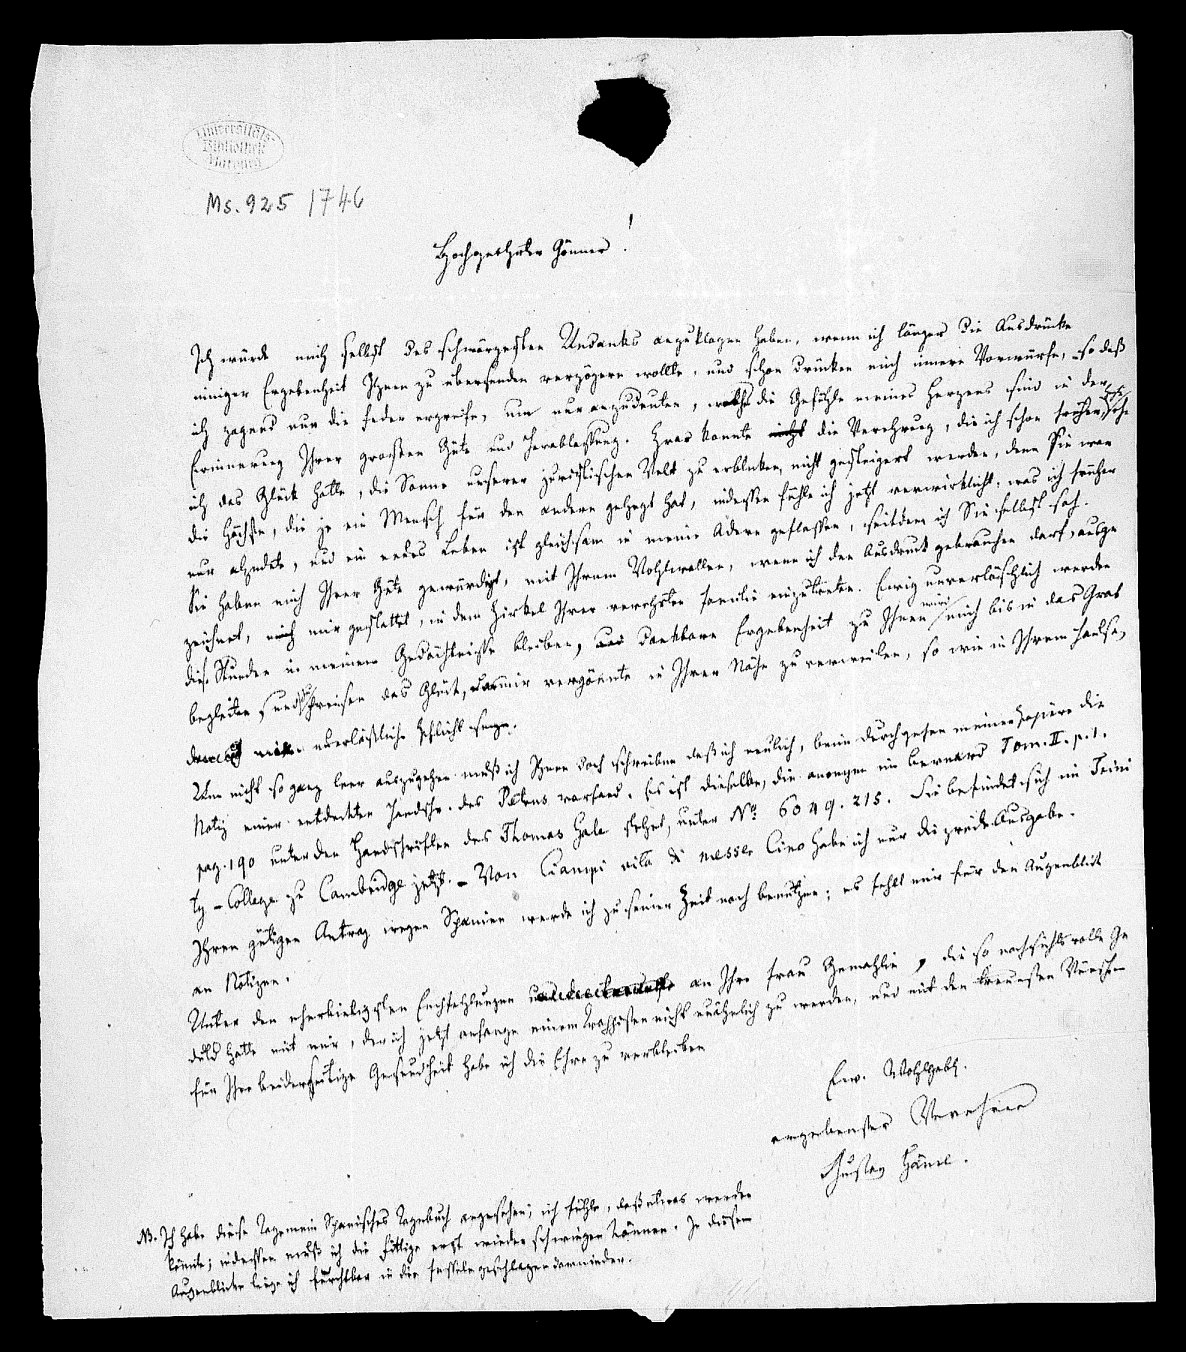 Universitäts-
Bibliothek
Marburg
Ms. 925 1746
Hochgeehrter Gönner!
Ich würde mich selbst des schwärzesten Undanks anzuklagen haben, wenn ich länger die Ausdrücke
inniger Ergebenheit Ihnen zu übersenden verzögern wollte, und schon drücken mich innere Vorwürfe, so daß
ich zagend nur die Feder ergreife, um nur anzudeuten, welche die Gefühle meines Herzens sind in der
Erinnerung Ihrer großen Güte und Herablassung. Zwar konnte nicht die Verehrung, die ich schon früher, ehe
ich das Glück hatte, die Sonne unserer juristischen Welt zu erblicken, nicht gesteigert werden, denn Sie war
die höchste, die je ein Mensch für den andern gehegt hat, indessen fühle ich jetzt verwirklicht, was ich früher
nur ahndete, und ein neues Leben ist gleichsam in meine Adern geflossen, seitdem ich Sie selbst sah.
Sie haben mich Ihrer Güte gewürdigt, mit Ihrem Wohlwollen, wenn ich den Ausdruck gebrauchen darf, ausge
zeichnet, mir gestattet, in dem Zirkel Ihrer verehrten Familie einzutreten. Ewig unverlöschlich werden
diese Stunden in meinem Gedächtnisse bleiben, dankbare Ergebenheit zu Ihnen wird mich bis in das Grab
begleiten, und preisen das Glück, das mir vergönnte in Ihrer Nähe zu verweilen, so wie in Ihrem Hause,
unerläßliche Pflicht seyn.
Um nicht so ganz leer auszugehen muß ich Ihnen doch schreiben daß ich neulich, beim Durchgehen meiner Papiere die
Notiz einer entdeckten Handschr. des Petrus vorfand. Es ist dieselbe, die anonym im Bernard Tom. II. p. 1.
pag. 190 unter den Handschriften des Thomas Gale steht, unter No 6049. 215. Sie befindet sich im Trini
ty-College zu Cambridge jetzt. - Von Ciampi vita di messer Cino habe ich nur die zweite Ausgabe.
Ihren gütigen Antrag wegen Spanien werde ich zu seiner Zeit noch benutzen; es fehlt mir für den Augenblick
an Notizen.
Unter den ehrerbietigsten Empfehlungen an Ihre Frau Gemahlin, die so nachsichtsvolle Ge
duld hatte mit mir, der ich jetzt anfange einem Trappisten nicht unähnlich zu werden, und mit den treuesten Wünschen
für Ihre beiderseitige Gesundheit habe ich die Ehre zu verbleiben
Ew. Wohlgeb.
ergebenster Verehrer
Gustav Hänel.
NB. Ich habe diese Tage mein Spanisches Tagebuch angesehen; ich fühle, daß etwas werden
könnte; indessen muß ich die Fittige erst wieder schwingen können. In diesem
Augenblicke liege ich furchtbar in die Fesseln geschlagen darnieder.